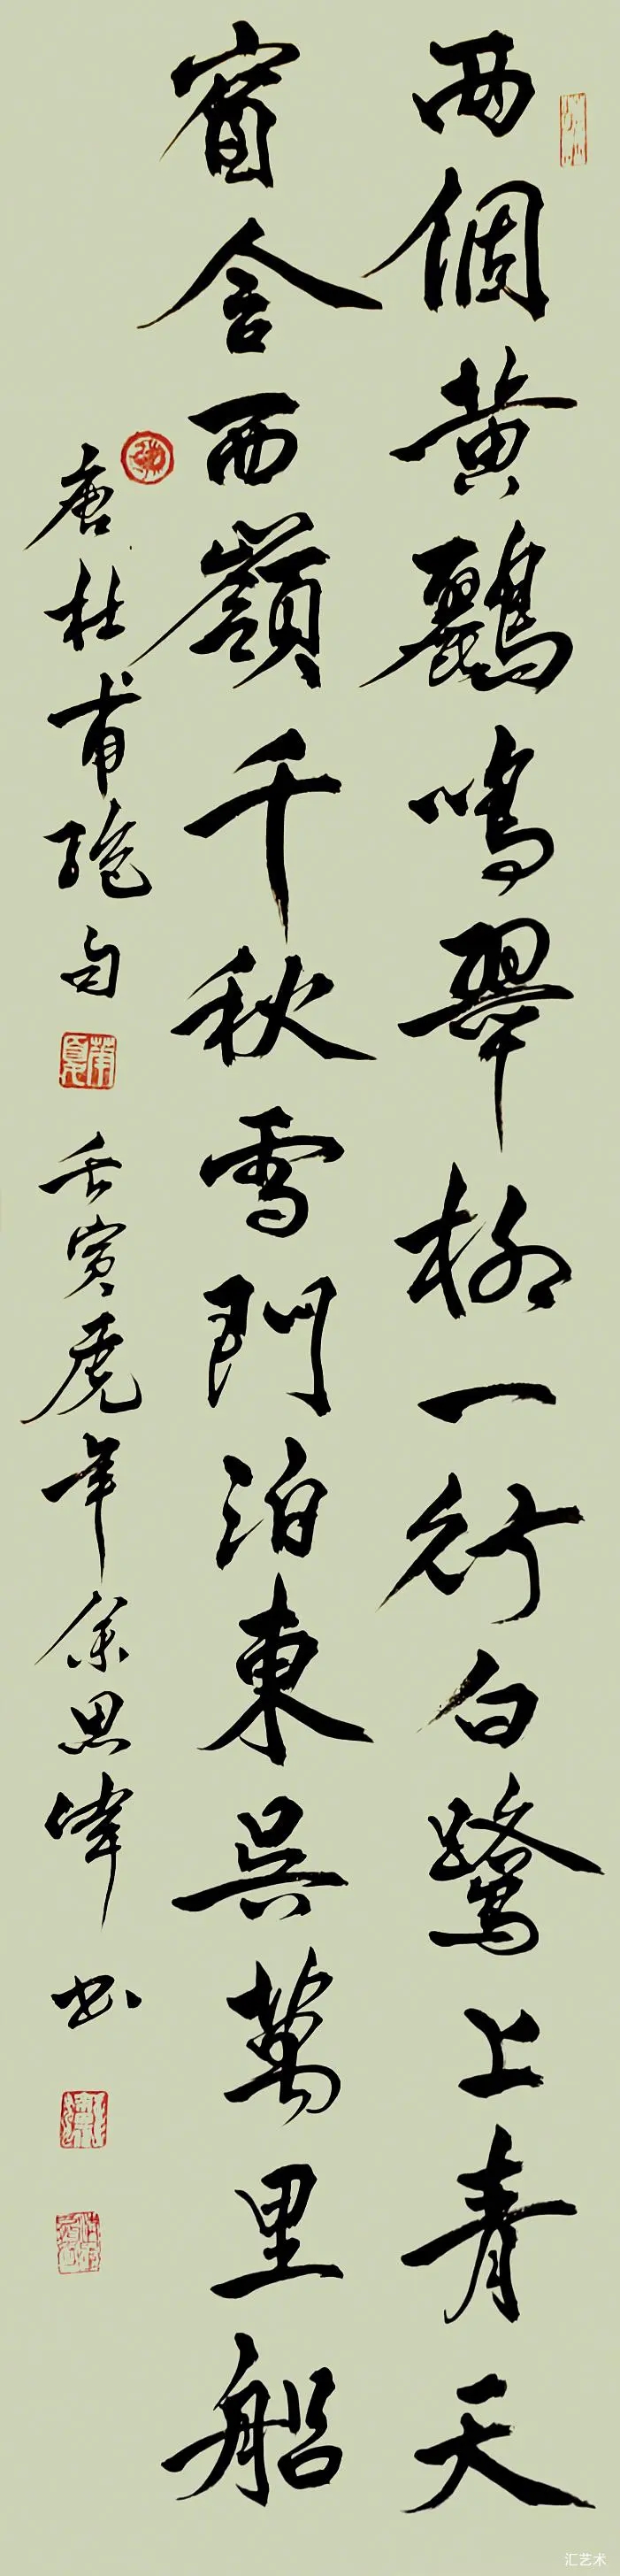 兩個黄鸝鳴翠柳一行白鷺上青天
窗含西嶺千秋雪門泊東吳萬里船
唐杜甫絕句 壬寅虎年余思 書
汇艺术